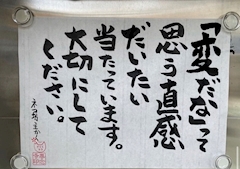 「変だな」って
思う直感
だいたい
当たっています。
大切にして
ください。